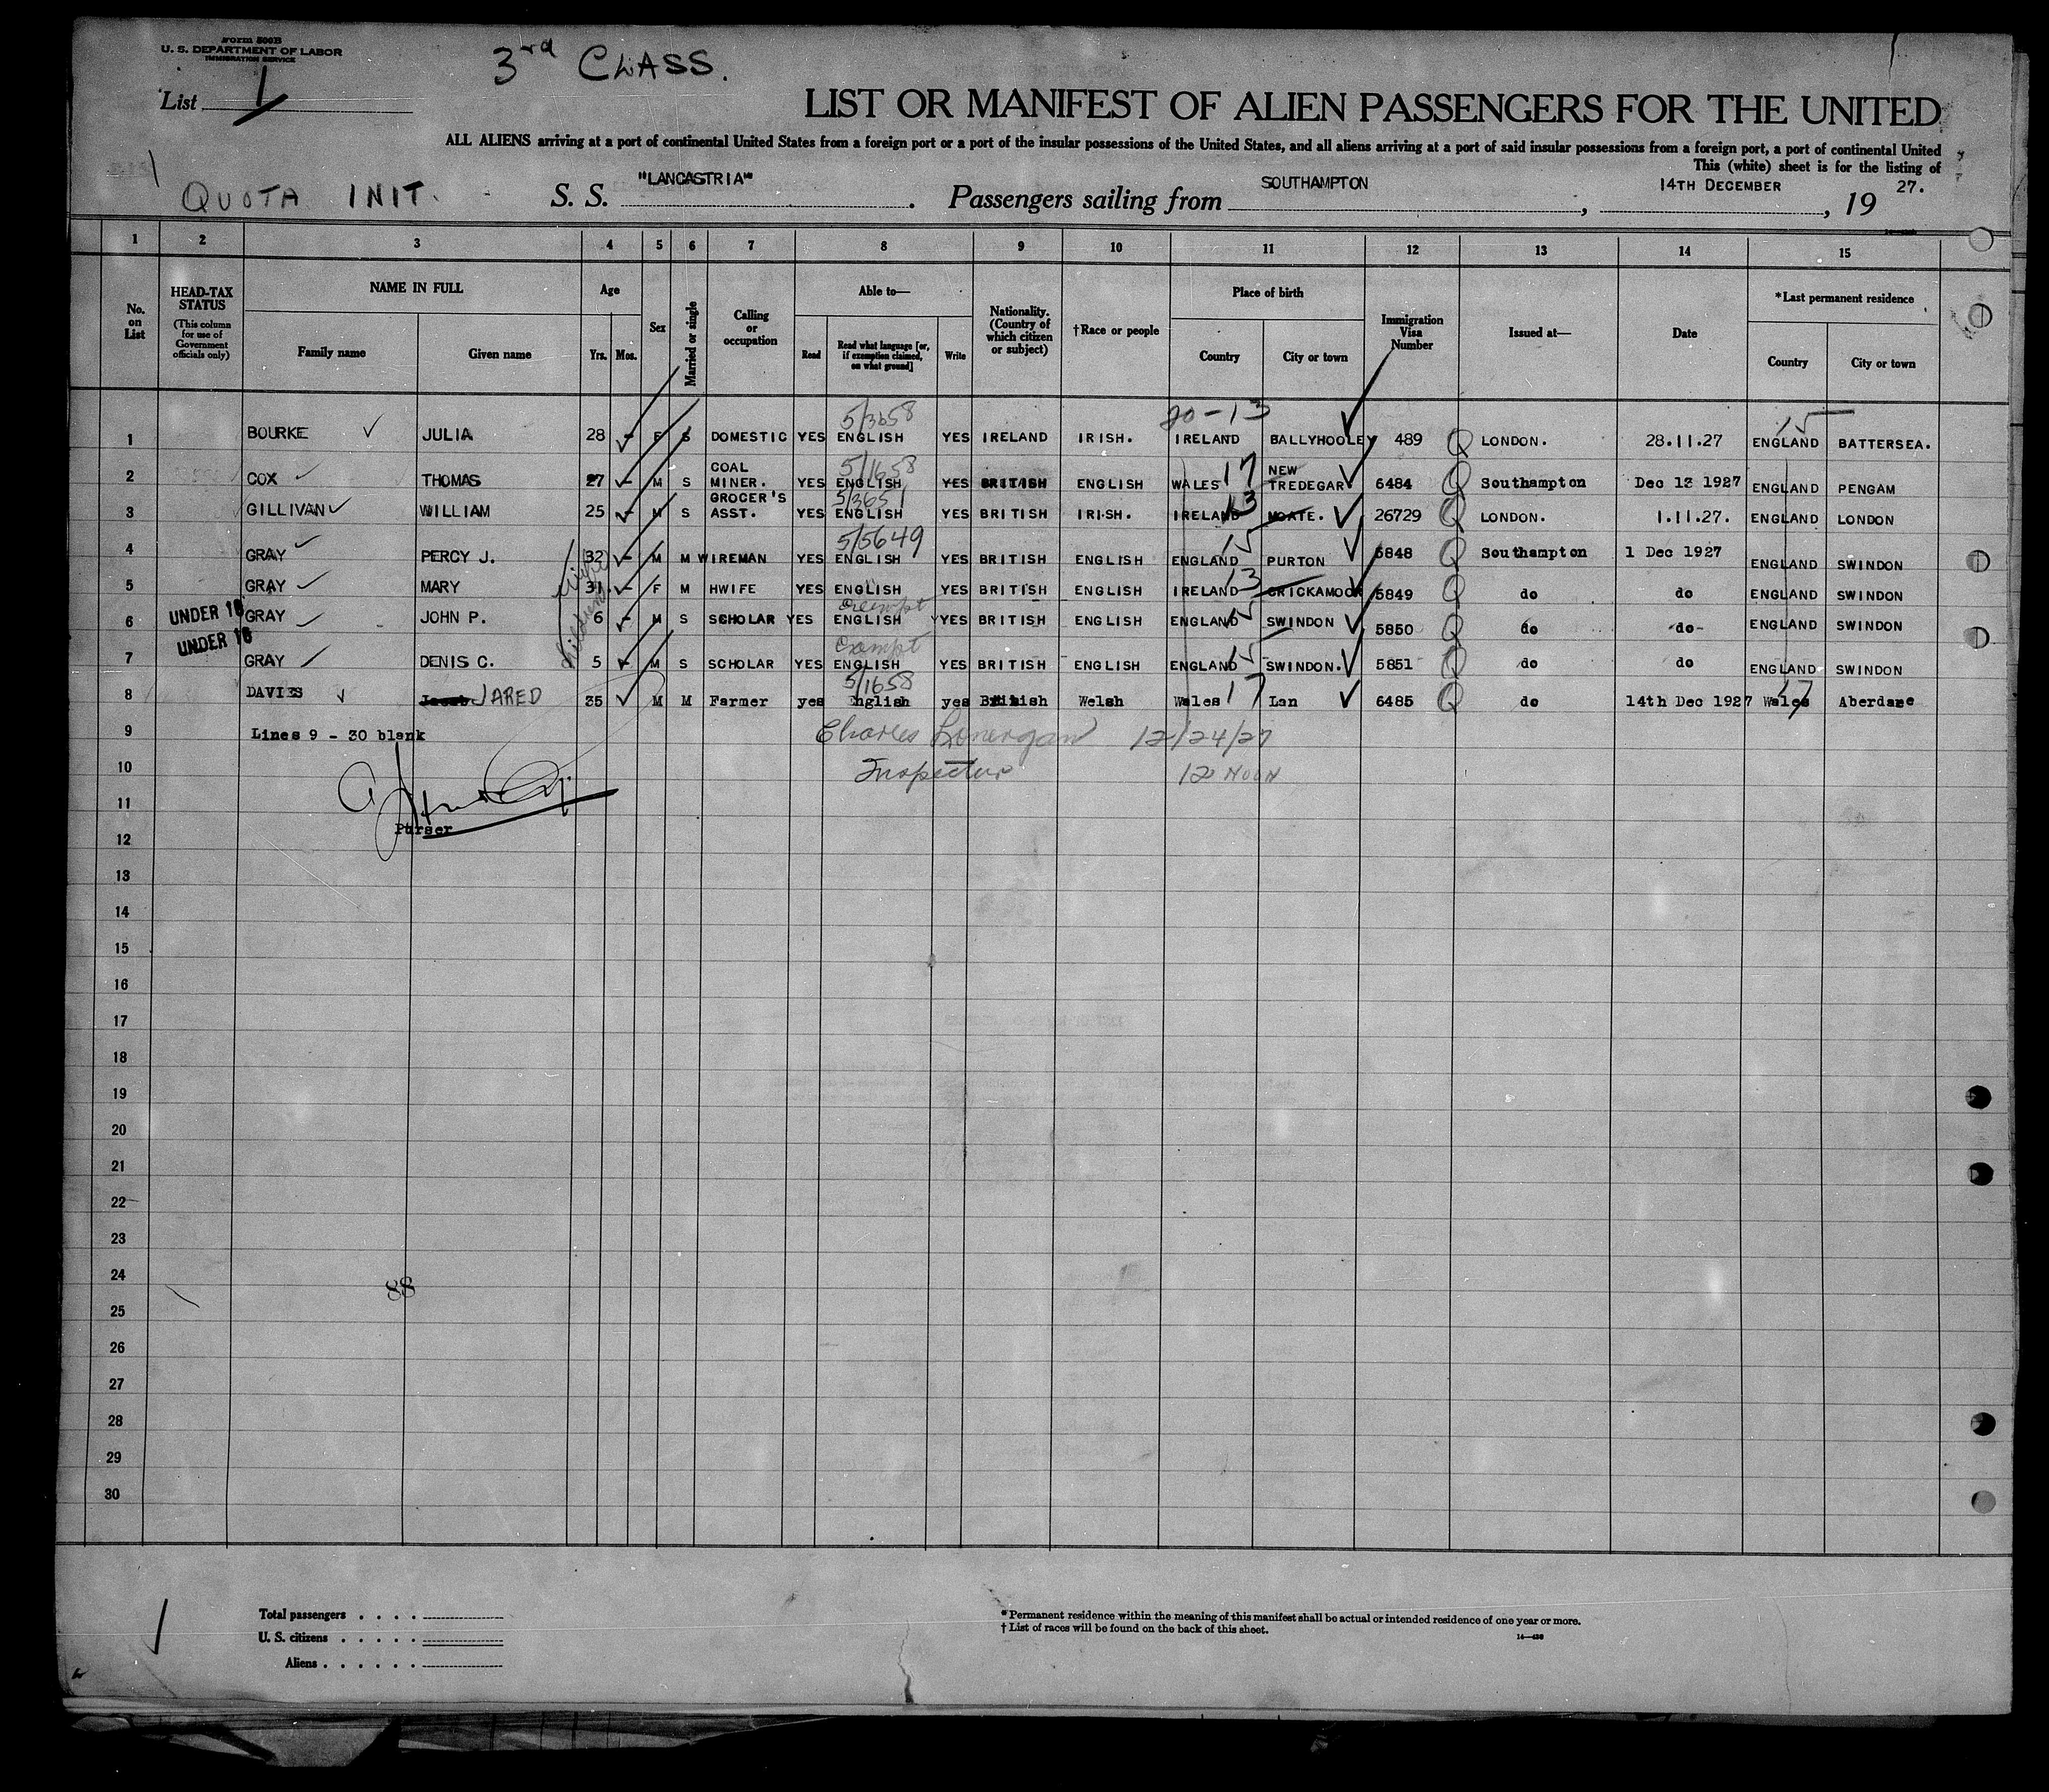 Form 500B
U. S. DEPARTMENT OF LABOR
IMMIGRATION SERVICE
3rd CLASS.
List 1
LIST OR MANIFEST OF ALIEN PASSENGERS FOR THE UNITED
ALL ALIENS arriving at a port of continental United States from a foreign port or a port of the insular possessions of the United States, and all aliens arriving at a port of said insular possessions from a foreign port, a port of continental United
This (white) sheet is for the listing of
QUOTA INIT. S. S. "LANCASTRIA". Passengers sailing from SOUTHAMPTON, 14TH DECEMBER, 19 27.
1 2 3 4 5 6 7 8 9 10 11 12 13 14 15
No. on List
HEAD-TAX STATUS
(This column for use of Government officials only)
NAME IN FULL
Family name Given name
Age
Yrs. Mos.
Sex
Married or single
Calling or occupation
Able to—
Read
Read what language [or, if exemption claimed, on what ground]
Write
Nationality. (Country of which citizen or subject)
†Race or people
Place of birth
Country City or town
Immigration Visa Number
Issued at—
Date
*Last permanent residence
Country City or town
5/3658 20-13 15
1 BOURKE JULIA 28 - F S DOMESTIC YES ENGLISH YES IRELAND IRISH. IRELAND BALLYHOOLEY 489 Q LONDON. 28.11.27 ENGLAND BATTERSEA.
5/1658
2 COX THOMAS 27 - M S COAL MINER. YES ENGLISH YES BRITISH ENGLISH WALES 17 NEW TREDEGAR 6484 Q Southampton Dec 13 1927 ENGLAND PENGAM
5/3651
3 GILLIVAN WILLIAM 25 - M S GROCER'S ASST. YES ENGLISH YES BRITISH IRISH. IRELAND 13 MOATE. 26729 Q LONDON. 1.11.27. ENGLAND LONDON
5/5649
4 GRAY PERCY J. 32 - M M WIREMAN YES ENGLISH YES BRITISH ENGLISH ENGLAND 15 PURTON 5848 Q Southampton 1 Dec 1927 ENGLAND SWINDON
5 GRAY MARY 31 - F M HWIFE YES ENGLISH YES BRITISH ENGLISH IRELAND 13 CRICKAMOCK 5849 Q do do ENGLAND SWINDON
UNDER 16 exempt
6 GRAY JOHN P. 6 - M S SCHOLAR YES ENGLISH YES BRITISH ENGLISH ENGLAND 15 SWINDON 5850 Q do -do- ENGLAND SWINDON
UNDER 16 Exempt
7 GRAY DENIS C. 5 - M S SCHOLAR YES ENGLISH YES BRITISH ENGLISH ENGLAND 15 SWINDON. 5851 Q do do ENGLAND SWINDON
5/1658
8 DAVIES JARED 35 M M Farmer yes English yes British Welsh Wales 17 Lan 6485 Q do 14th Dec 1927 Wales 17 Aberdare
9 Lines 9 - 30 blank Charles Lonergan 12/24/27
10 Inspector 12 NOON
11
Purser
12
13
14
15
16
17
18
19
20
21
22
23
24
88
25
26
27
28
29
30
Total passengers . . . .
U. S. citizens . . . . .
Aliens . . . . . .
*Permanent residence within the meaning of this manifest shall be actual or intended residence of one year or more.
†List of races will be found on the back of this sheet.
14—436